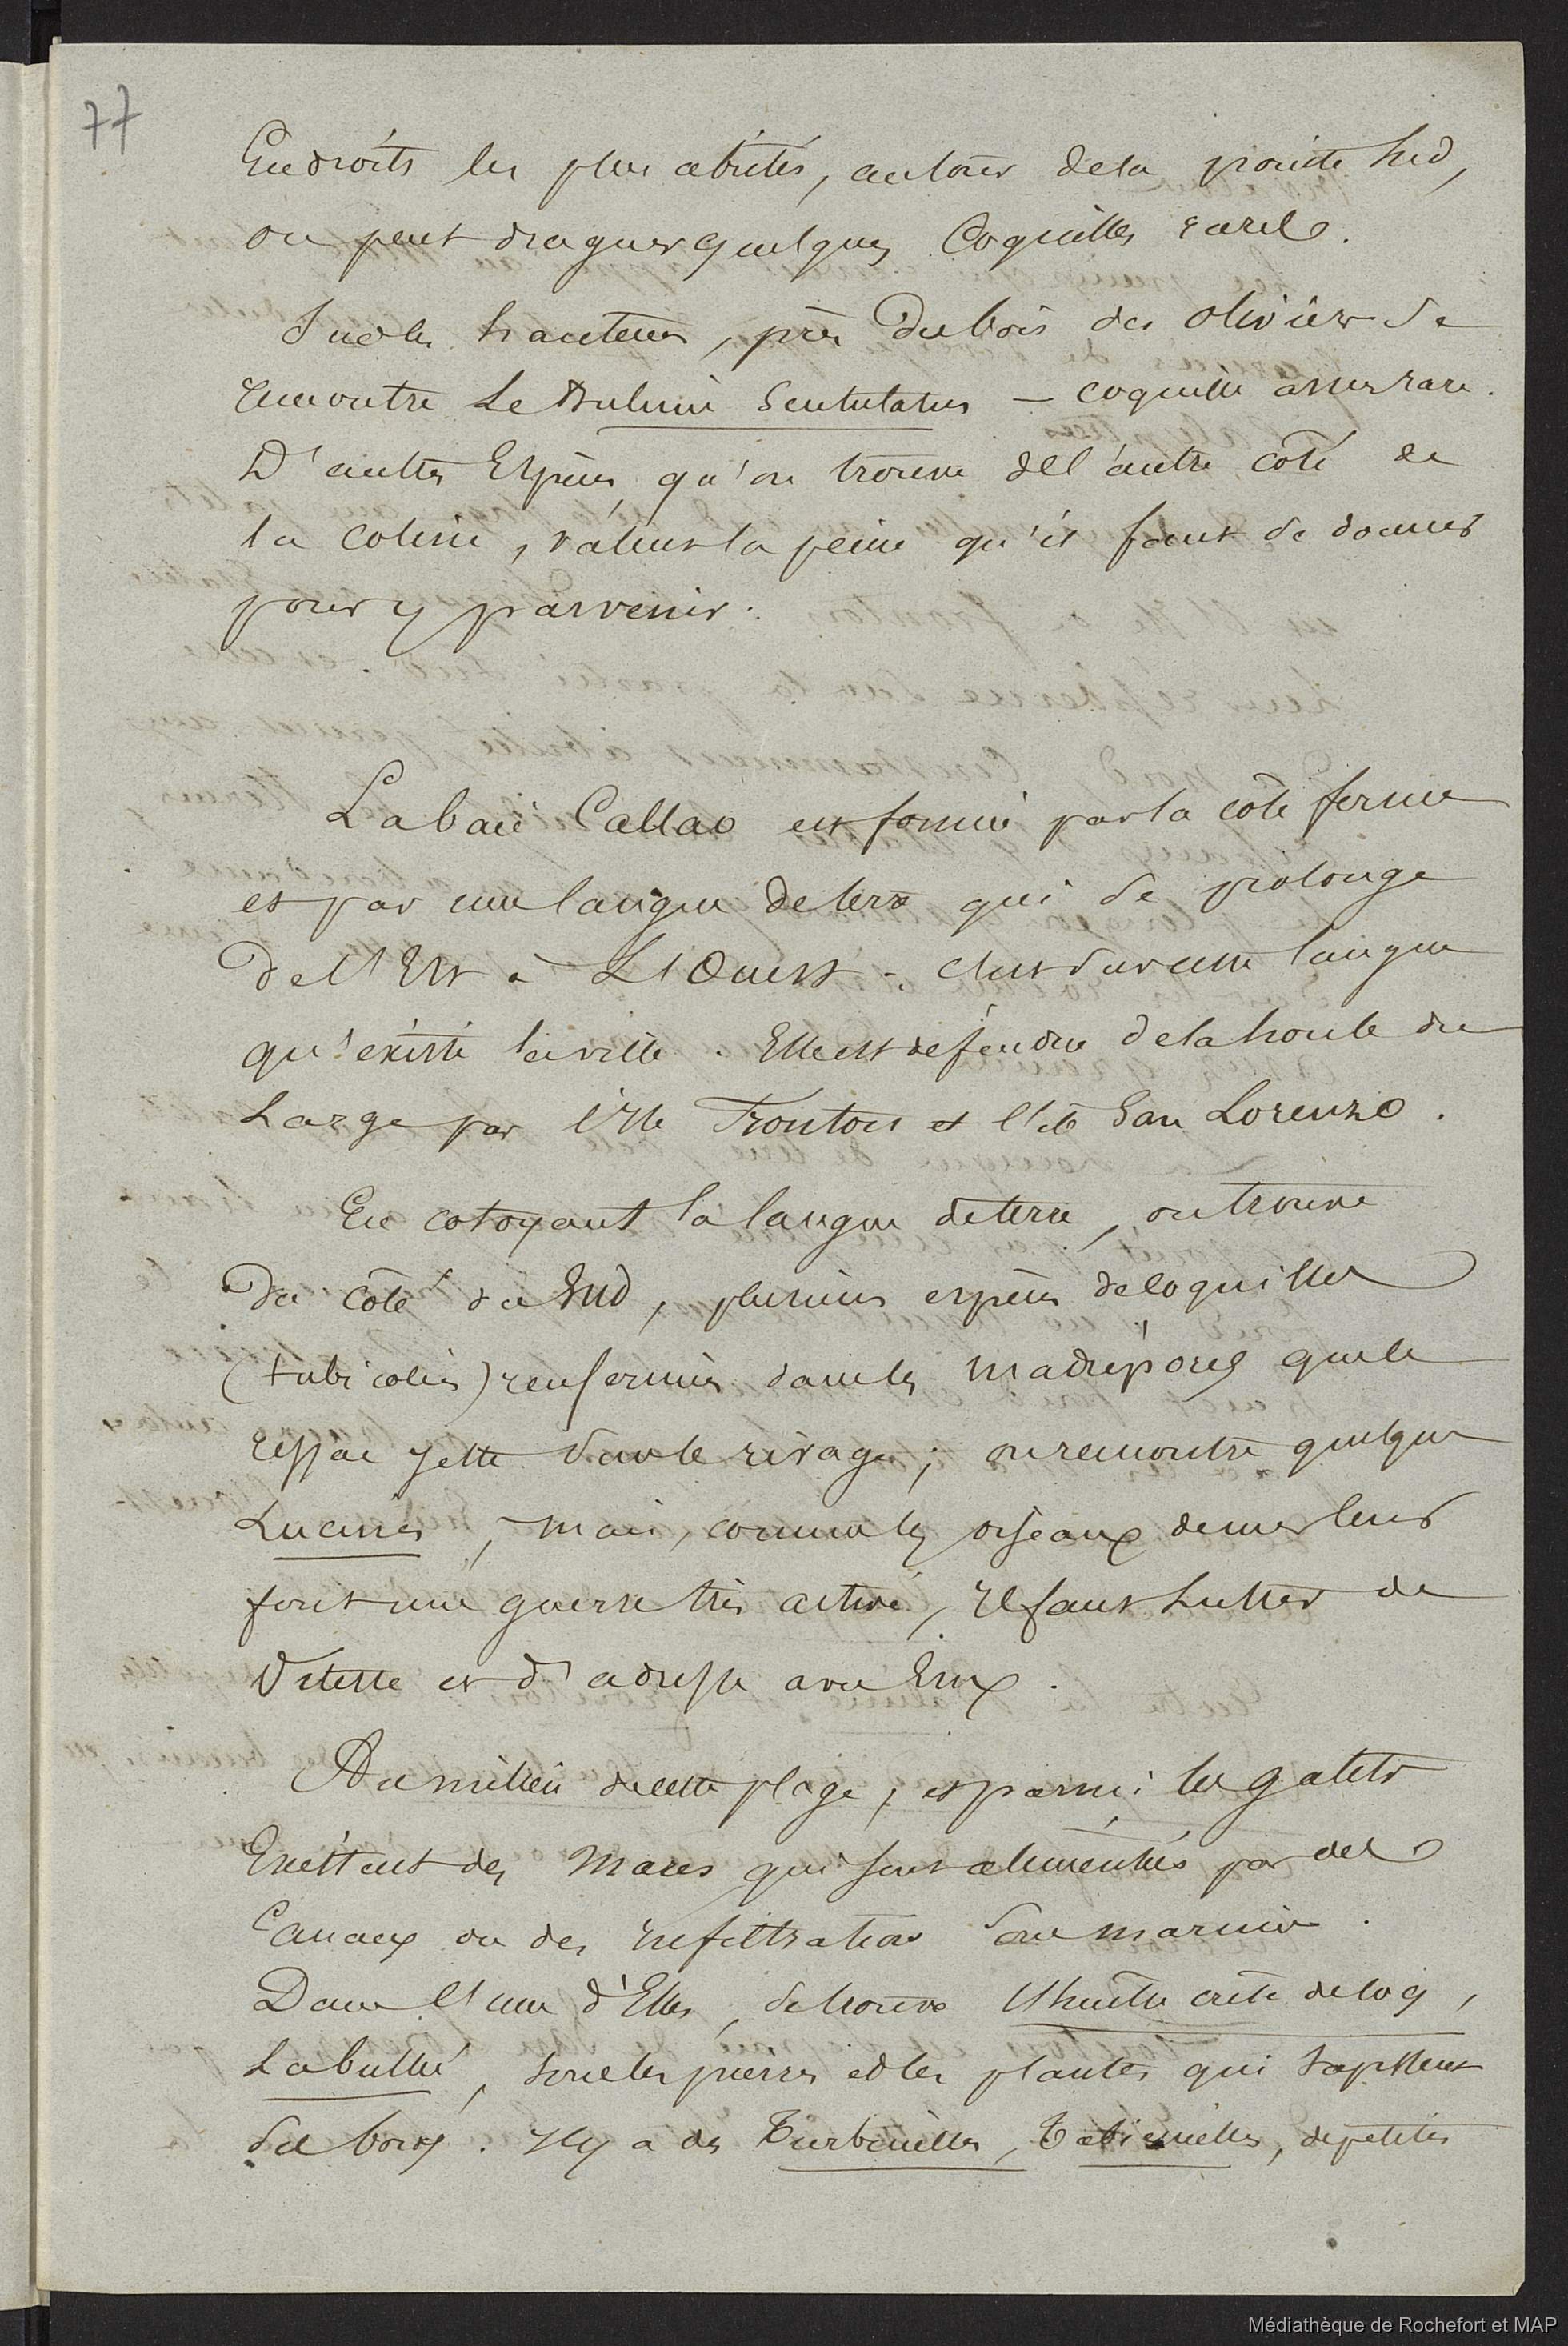 77
Endroits les plus abrités, autour de la pointe Sud,
on peut draguer quelques Coquilles rares.
Sur les hauteurs, près du bois des oliviers se
rencontre Le Bulime Scutulatus — coquille assez rare.
D'autres Espèces, qu'on trouve de l'autre côté de
la coline, valent la peine qu'il faut se donner
pour y parvenir.
La baie Callao est formée par la côte ferme
et par une langue de terre qui se prolonge
de l'Est à L'Ouest. C'est sur cette langue
qu'existe la ville. Elle est défendue de la houle du
Large par l'Ile Fronton et l'ile San Lorenzo.
En cotoyant la langue de terre, on trouve
du côté du Sud, plusieurs espèces de coquilles
(tubicolées) renfermées dans les madrépores que le
ressac jette sur le rivage; on rencontre quelques
Lucines, mais, comme les oiseaux de mer leur
font une guerre très active, Il faut Lutter de
Vitesse et d'adresse avec Eux.
Au milieu de cette plage, et parmi les galets
Existent des mares qui sont alimentées par des
Canaux ou des infiltrations Sous marines.
Dans l'une d'Elles, se trouve l'huitre crête de coq,
La bullée, sous les pierres et les plantes qui tapissent
ses bords. Il y a des Turbinelles, , de petites